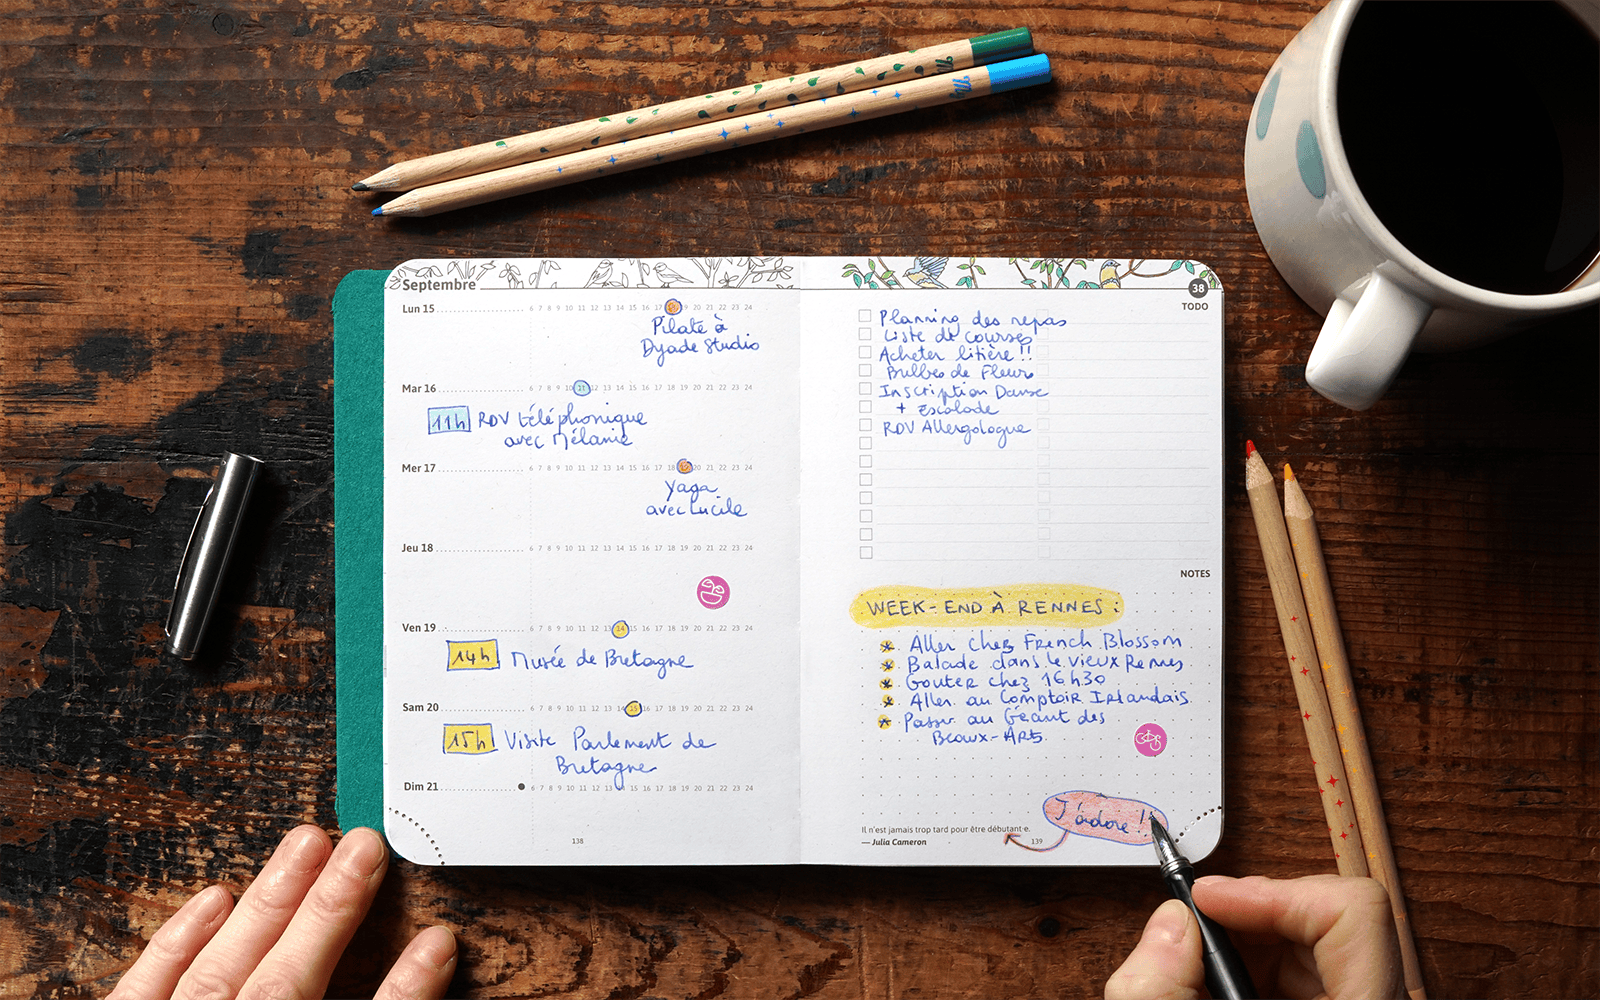 Septembre
Lun 15
6 7 8 9 10 11 12 13 14 15 16 17 18 19 20 21 22 23 24
Pilate à
Dyade Studio
Mar 16
6 7 8 9 10 11 12 13 14 15 16 17 18 19 20 21 22 23 24
11h RDV téléphonique
avec Mélanie
Mer 17
6 7 8 9 10 11 12 13 14 15 16 17 18 19 20 21 22 23 24
Yaga
avec Lucile
Jeu 18
6 7 8 9 10 11 12 13 14 15 16 17 18 19 20 21 22 23 24
Ven 19
6 7 8 9 10 11 12 13 14 15 16 17 18 19 20 21 22 23 24
14h Musée de Bretagne
Sam 20
6 7 8 9 10 11 12 13 14 15 16 17 18 19 20 21 22 23 24
15h Visite Parlement de
Bretagne
Dim 21
6 7 8 9 10 11 12 13 14 15 16 17 18 19 20 21 22 23 24
138
38
TODO
Planning des repas
Liste de courses
Acheter litière !!
Bulbes de Fleurs
Inscription Danse
+ Escalade
RDV Allergologue
NOTES
WEEK-END À RENNES :
Aller chez French Blossom
Balade dans le vieux Rennes
Gouter chez 16h30
Aller au Comptoir Irlandais
Passer au Géant des
Beaux-Arts
J'adore !!
Il n'est jamais trop tard pour être débutant·e.
— Julia Cameron
139